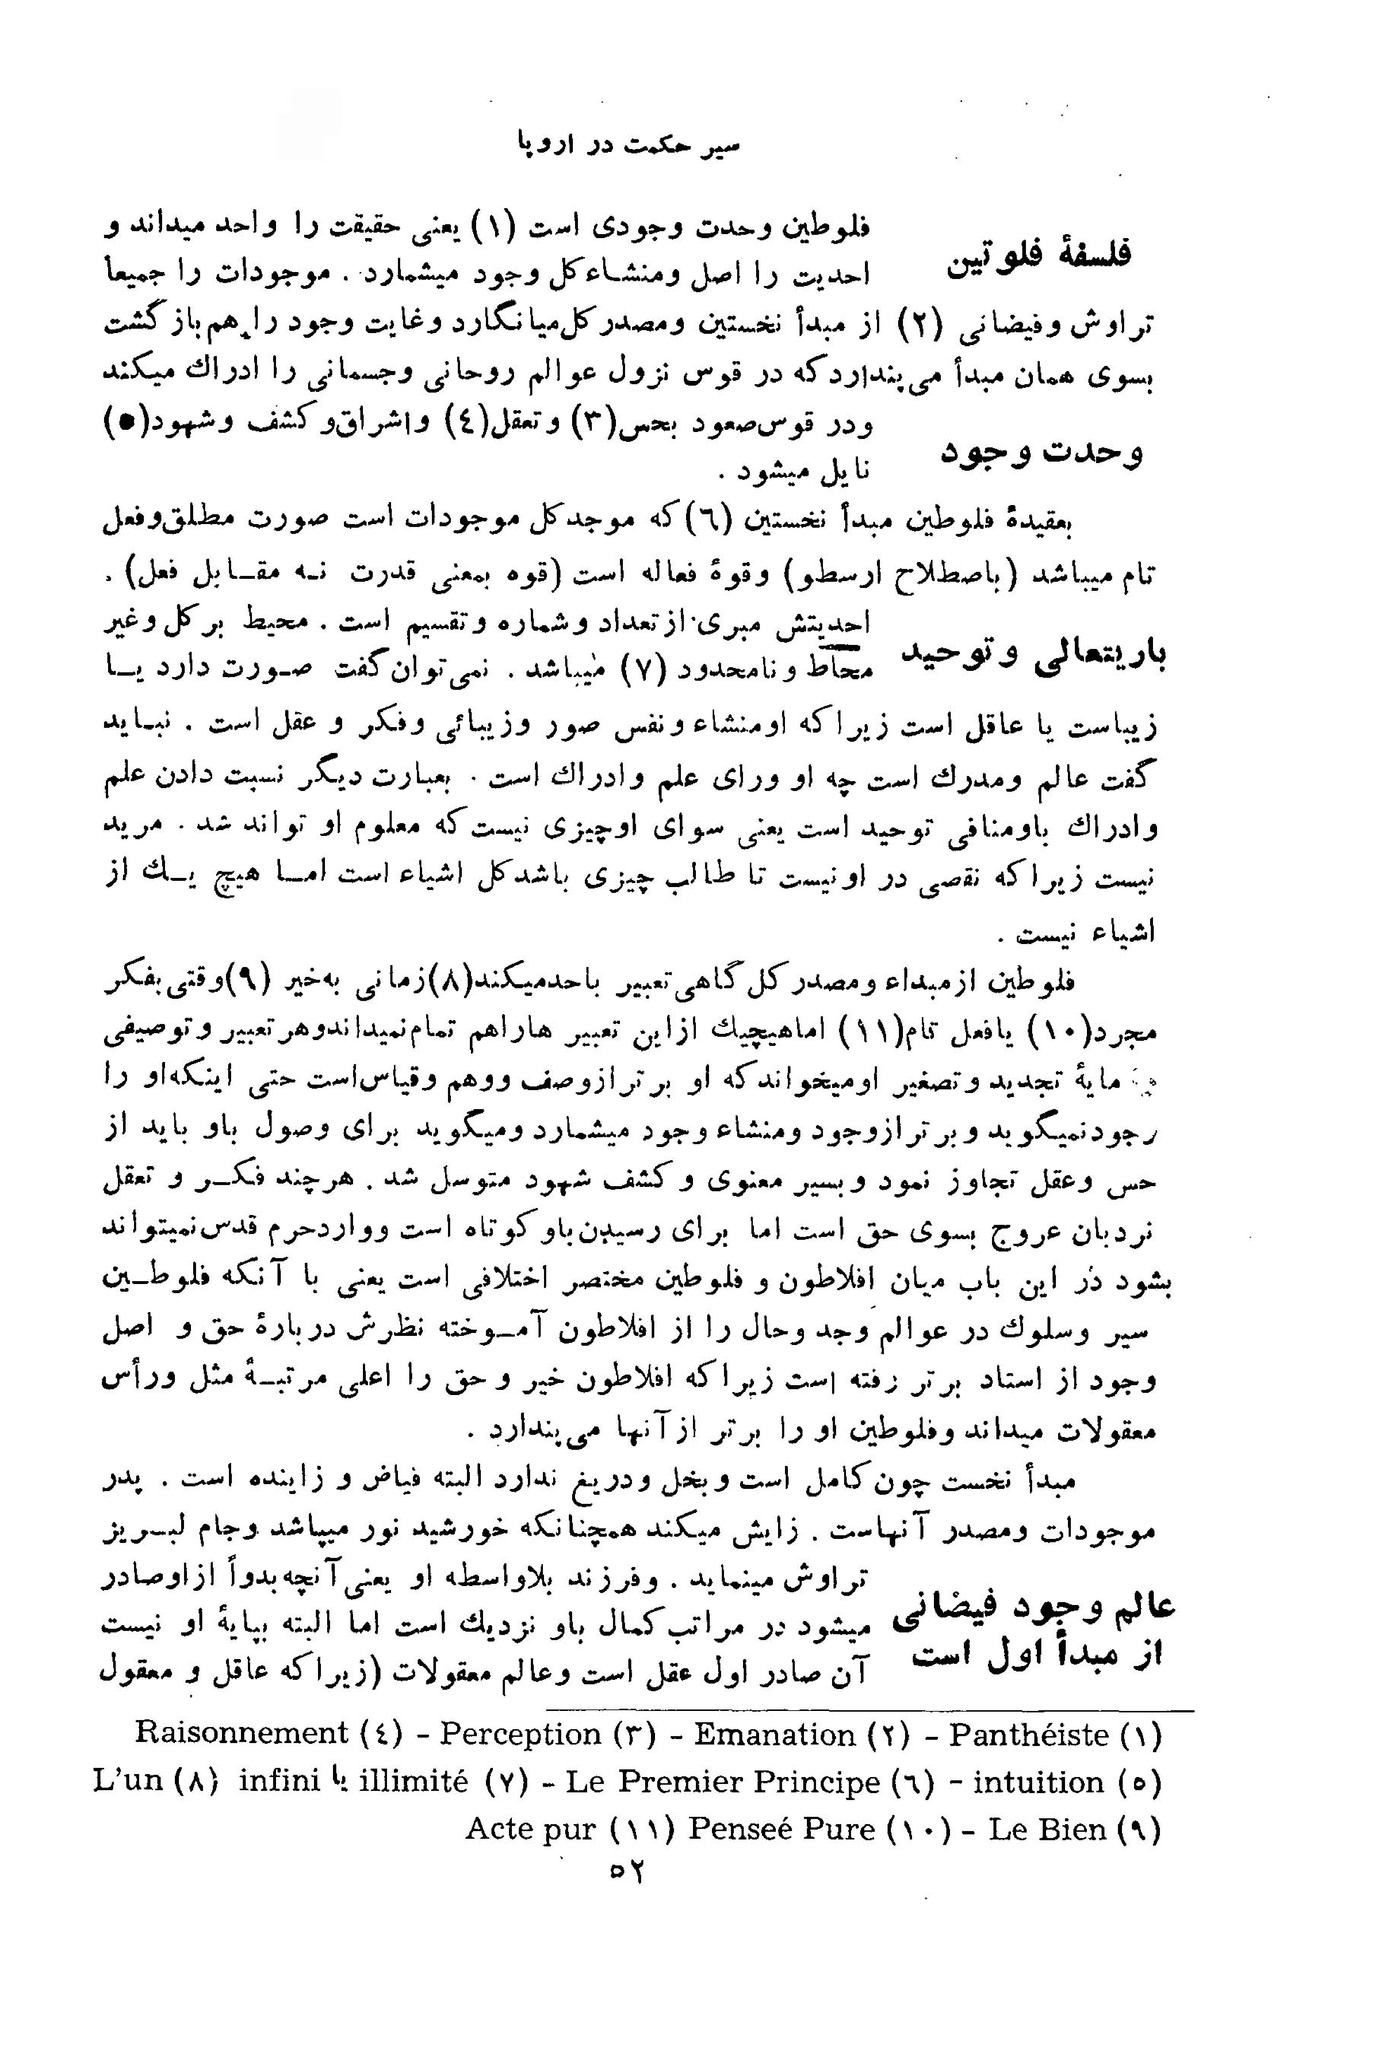 سیر حکمت در اروپا
فلسفۀ فلوتین
فلوطین وحدت وجودی است (۱) یعنی حقیقت را واحد میداند و
احدیت را اصل ومنشاء کل وجود میشمارد . موجودات را جمیعاً
تراوش وفیضانی (۲) از مبدأ نخستین ومصدر کل میانگارد وغایت وجود را هم بازگشت
بسوی همان مبدأ می‌پندارد که در قوس نزول عوالم روحانی وجسمانی را ادراك میکند
وحدت وجود
ودر قوس صعود بحس(۳) وتعقل(٤) واشراق و کشف وشهود(٥)
نایل میشود .
بعقیدۀ فلوطین مبدأ نخستین (٦) که موجد کل موجودات است صورت مطلق وفعل
تام میباشد (باصطلاح ارسطو) وقوۀ فعاله است (قوه بمعنی قدرت نـه مقـابل فعل) .
باریتعالی وتوحید
احدیتش مبری از تعداد وشماره وتقسیم است . محیط بر کل وغیر
محاط ونامحدود (۷) میباشد . نمی‌توان گفت صـورت دارد یـا
زیباست یا عاقل است زیرا که اومنشاء ونفس صور وزیبائی وفکر و عقل است . نبـاید
گفت عالم ومدرك است چه او ورای علم وادراك است . بعبارت دیگر نسبت دادن علم
وادراك باومنافی توحید است یعنی سوای اوچیزی نیست که معلوم او تواند شد . مرید
نیست زیرا که نقصی در اونیست تا طالب چیزی باشد کل اشیاء است امـا هیچ یـك از
اشیاء نیست .
فلوطین از مبداء ومصدر کل گاهی تعبیر باحد میکند(۸)زمانی به خیر (۹)وقتی بفکر
مجرد(۱۰) یافعل تام(۱۱) اماهیچیك از این تعبیر هارا هم تمام نمیداند وهر تعبیر وتوصیفی
مایۀ تجدید وتصغیر اومیخواند که او برتر از وصف ووهم وقیاس است حتی اینکه او را
وجود نمیگوید وبرتر از وجود ومنشاء وجود میشمارد ومیگوید برای وصول باو باید از
حس وعقل تجاوز نمود وبسیر معنوی و کشف شهود متوسل شد . هرچند فکـر و تعقل
نردبان عروج بسوی حق است اما برای رسیدن باو کوتاه است ووارد حرم قدس نمیتواند
بشود در این باب میان افلاطون و فلوطین مختصر اختلافی است یعنی با آنکه فلوطـین
سیر وسلوك در عوالم وجد وحال را از افلاطون آمـوخته نظرش دربارۀ حق و اصل
وجود از استاد برتر رفته است زیرا که افلاطون خیر و حق را اعلی مرتبـۀ مثل ورأس
معقولات میداند وفلوطین او را برتر از آنها می‌پندارد .
مبدأ نخست چون کامل است وبخل ودریغ ندارد البته فیاض و زاینده است . پدر
موجودات ومصدر آنهاست . زایش میکند همچنانکه خورشید نور میپاشد وجام لبـریز
عالم وجود فیضانی
از مبدأ اول است
تراوش مینماید . وفرزند بلاواسطه او یعنی آنچه بدواً از اوصادر
میشود در مراتب کمال باو نزدیك است اما البته بپایۀ او نیست
آن صادر اول عقل است وعالم معقولات (زیرا که عاقل و معقول
(۱) Panthéiste – (۲) Emanation – (۳) Perception – (٤) Raisonnement
(٥) intuition – (٦) Le Premier Principe – (۷) illimité یا infini (۸) L'un
(۹) Le Bien – (۱۰) Penseé Pure (۱۱) Acte pur
٥٢